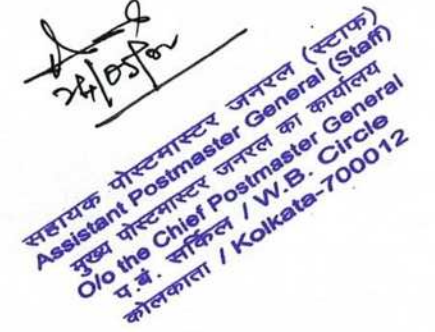 24/05/02
सहायक पोस्टमास्टर जनरल (स्टाफ)
Assistant Postmaster General (Staff)
मुख्य पोस्टमास्टर जनरल का कार्यालय
O/o the Chief Postmaster General
प.बं. सर्किल / W.B. Circle
कोलकाता / Kolkata-700012